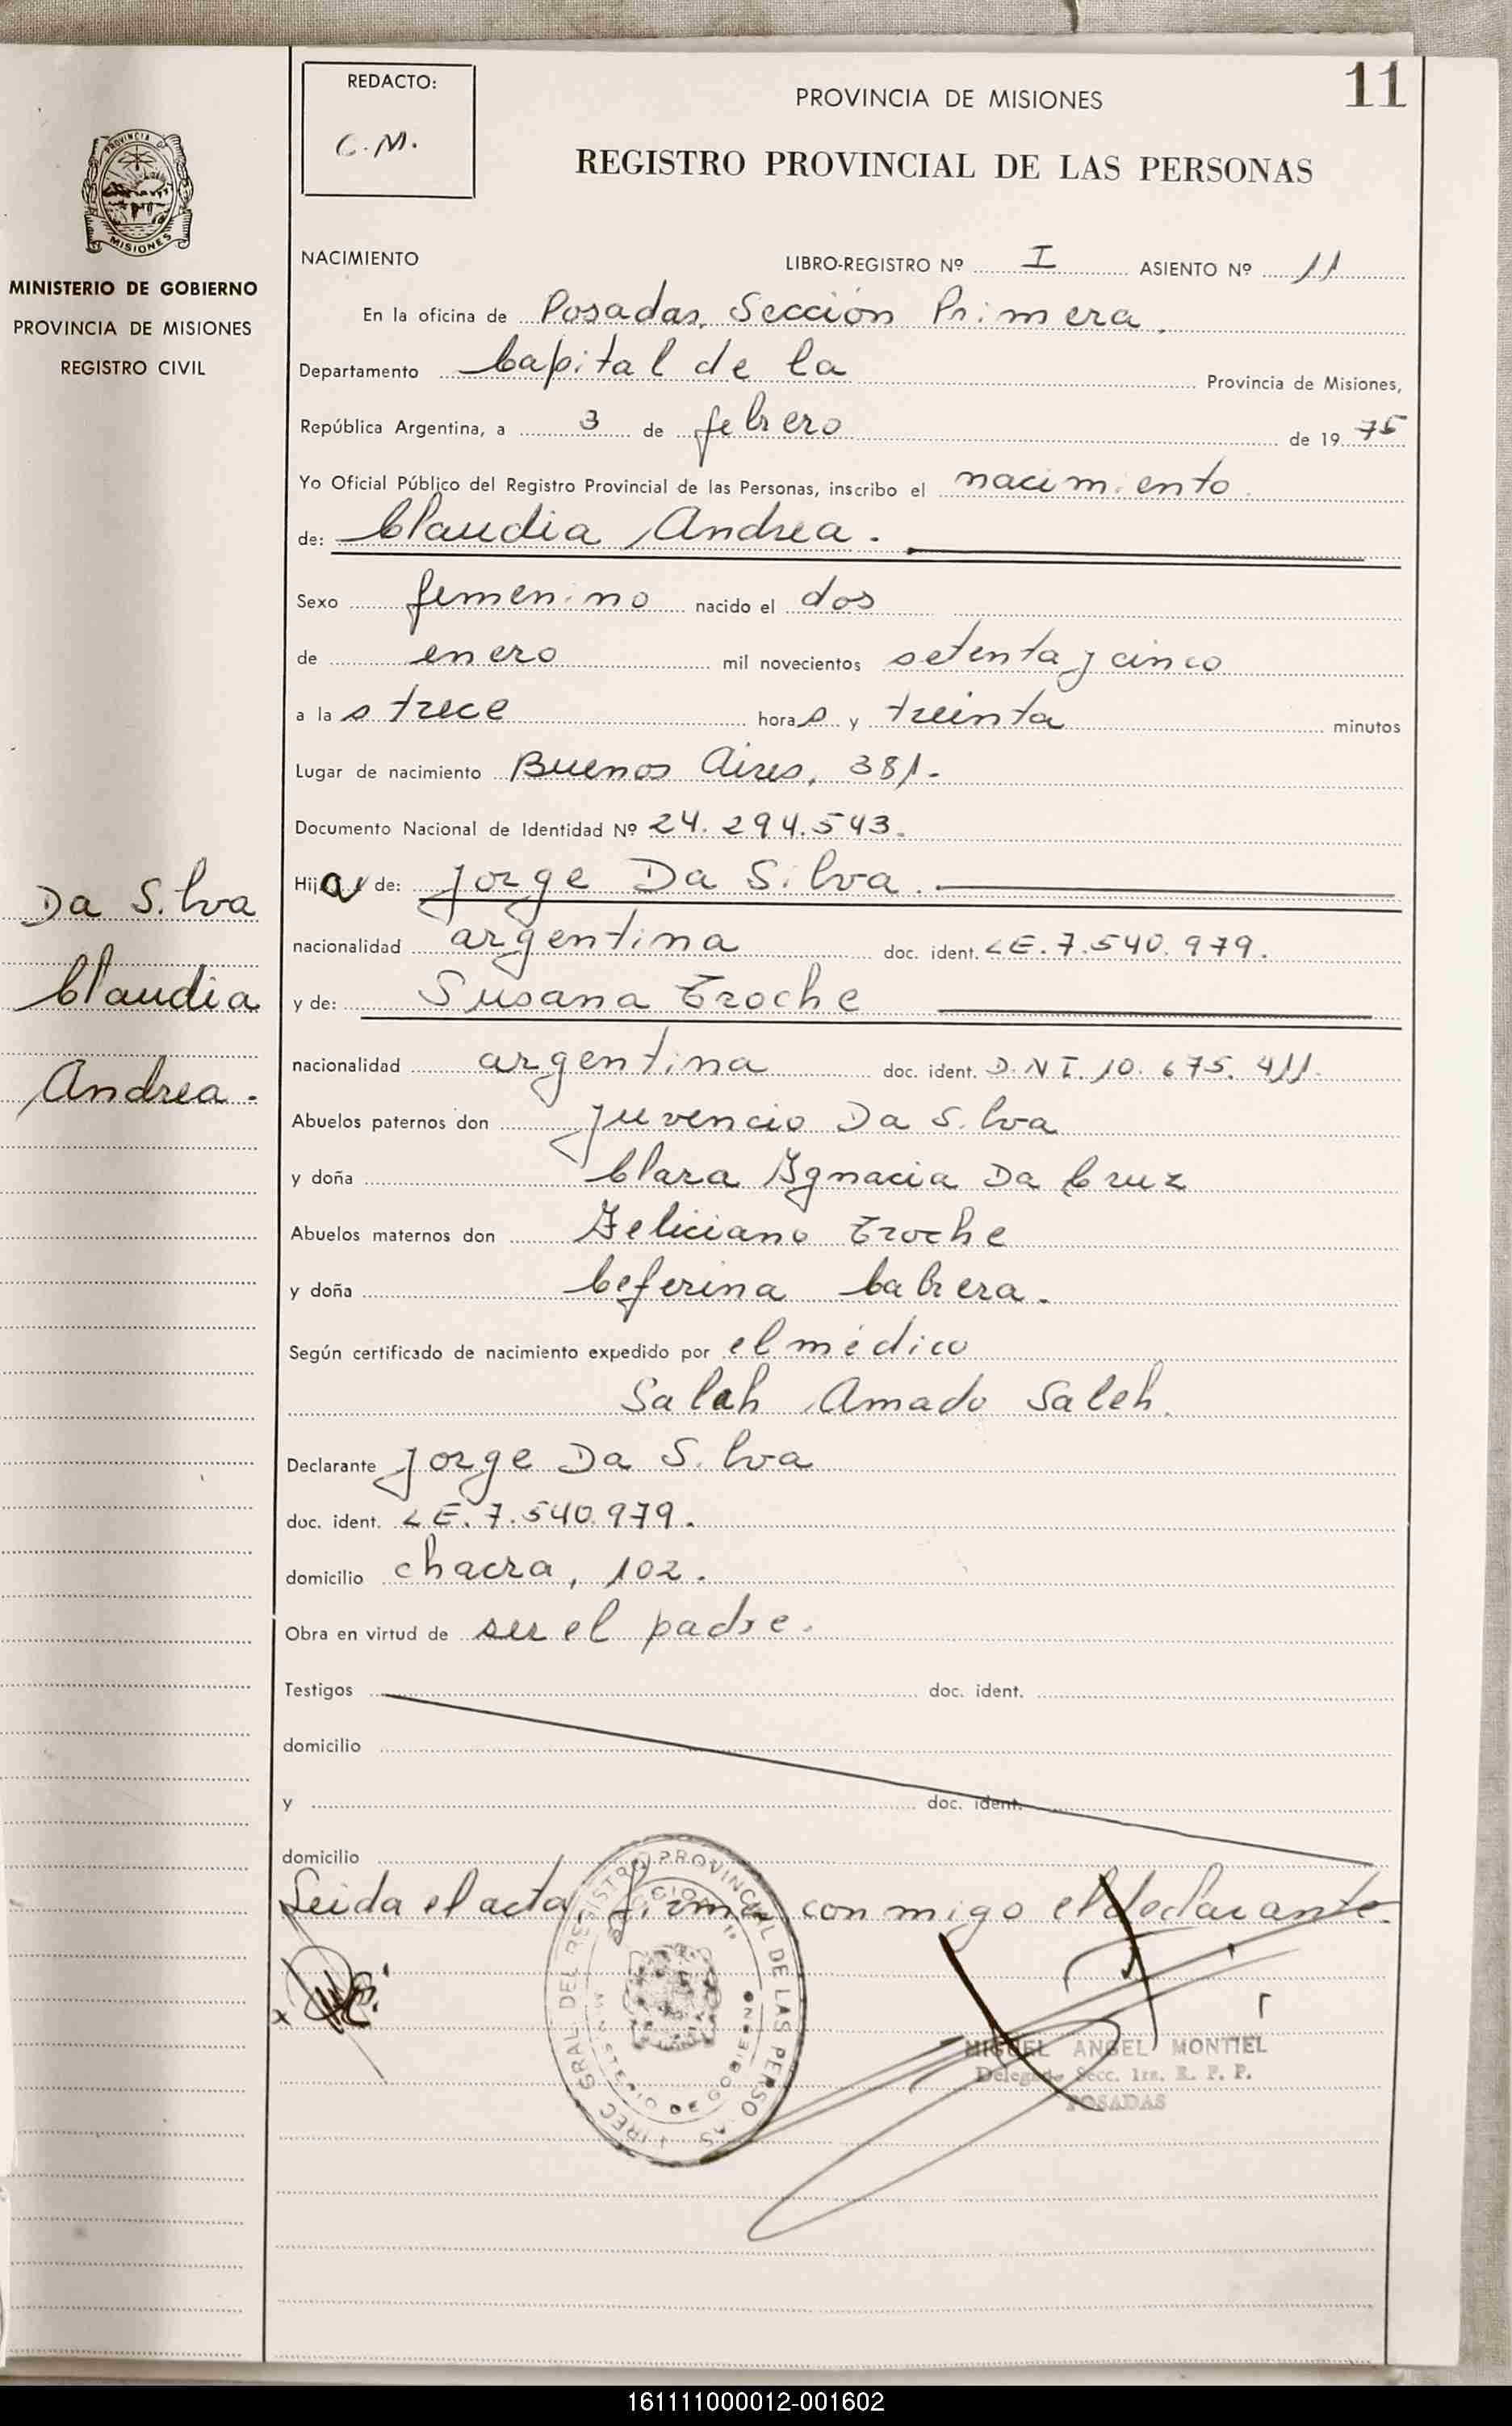 11
REDACTO:
C.M.
PROVINCIA DE MISIONES
REGISTRO PROVINCIAL DE LAS PERSONAS
PROVINCIA DE
MISIONES
MINISTERIO DE GOBIERNO
PROVINCIA DE MISIONES
REGISTRO CIVIL
NACIMIENTO LIBRO-REGISTRO Nº I ASIENTO Nº 11
En la oficina de Posadas, Sección Primera.
Departamento Capital de la Provincia de Misiones,
República Argentina, a 3 de febrero de 1975
Yo Oficial Público del Registro Provincial de las Personas, inscribo el nacimiento
de: Claudia Andrea.
Sexo femenino nacido el dos
de enero mil novecientos setenta y cinco
a la s trece hora s y treinta minutos
Lugar de nacimiento Buenos Aires, 381.
Documento Nacional de Identidad Nº 24.294.543.
Hija de: Jorge Da Silva.
nacionalidad argentina doc. ident. LE. 7.540.979.
y de: Susana Troche
nacionalidad argentina doc. ident. D.N I. 10. 675. 411.
Abuelos paternos don Juvencio Da Silva
y doña Clara Ignacia Da Cruz
Abuelos maternos don Feliciano Troche
y doña Ceferina Cabrera.
Según certificado de nacimiento expedido por el médico
Saleh Amado Saleh.
Declarante Jorge Da Silva
doc. ident. LE. 7.540.979.
domicilio chacra, 102.
Obra en virtud de ser el padre.
Testigos doc. ident.
domicilio
y doc. ident.
domicilio
Leida el acta, firma conmigo el declarante.
Da Silva
Claudia
Andrea.
DIREC. GRAL. DEL REGISTRO PROVINCIAL DE LAS PERSONAS
MINISTERIO DE GOBIERNO
MIGUEL ANGEL MONTIEL
Delegado Secc. 1ra. R. P. P.
POSADAS
161111000012-001602